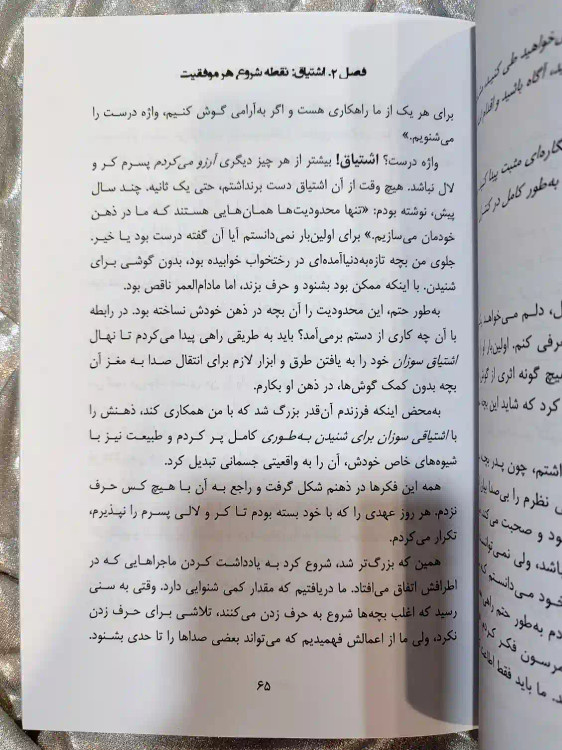 فصل ۲. اشتیاق: نقطه شروع هر موفقیت
برای هر یک از ما راهکاری هست و اگر به‌آرامی گوش کنیم، واژه درست را
می‌شنویم.»
واژه درست؟ اشتیاق! بیشتر از هر چیز دیگری آرزو می‌کردم پسرم کر و
لال نباشد. هیچ وقت از آن اشتیاق دست برنداشتم، حتی یک ثانیه. چند سال
پیش، نوشته بودم: «تنها محدودیت‌ها همان‌هایی هستند که ما در ذهن
خودمان می‌سازیم.» برای اولین‌بار نمی‌دانستم آیا آن گفته درست بود یا خیر.
جلوی من بچه تازه‌به‌دنیاآمده‌ای در رختخواب خوابیده بود، بدون گوشی برای
شنیدن. با اینکه ممکن بود بشنود و حرف بزند، اما مادام‌العمر ناقص بود.
به‌طور حتم، این محدودیت را آن بچه در ذهن خودش نساخته بود. در رابطه
با آن چه کاری از دستم برمی‌آمد؟ باید به طریقی راهی پیدا می‌کردم تا نهال
اشتیاق سوزان خود را به یافتن طرق و ابزار لازم برای انتقال صدا به مغز آن
بچه بدون کمک گوش‌ها، در ذهن او بکارم.
به‌محض اینکه فرزندم آن‌قدر بزرگ شد که با من همکاری کند، ذهنش را
با اشتیاقی سوزان برای شنیدن به‌طوری کامل پر کردم و طبیعت نیز با
شیوه‌های خاص خودش، آن را به واقعیتی جسمانی تبدیل کرد.
همه این فکرها در ذهنم شکل گرفت و راجع به آن با هیچ کس حرف
نزدم. هر روز عهدی را که با خود بسته بودم تا کر و لالی پسرم را نپذیرم،
تکرار می‌کردم.
همین که بزرگ‌تر شد، شروع کرد به یادداشت کردن ماجراهایی که در
اطرافش اتفاق می‌افتاد. ما دریافتیم که مقدار کمی شنوایی دارد. وقتی به سنی
رسید که اغلب بچه‌ها شروع به حرف زدن می‌کنند، تلاشی برای حرف زدن
نکرد، ولی ما از اعمالش فهمیدیم که می‌تواند بعضی صداها را تا حدی بشنود.
۶۵